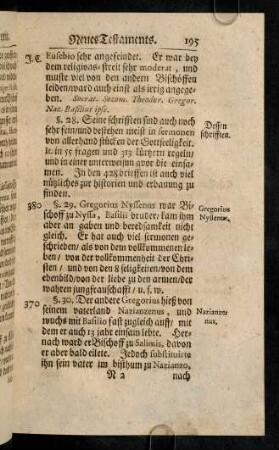 Neues Testaments. 195
J. C. Eusebio sehr angefeindet. Er war bey
dem religions-streit sehr moderat, und
muste viel von den andern Bischöffen
leiden/ward auch einst als irrig angege-
ben. Socrat. Sozom. Theodor. Gregor.
Naz. Basilius ipse.
§. 28. Seine schrifften sind auch noch
sehr fein/und bestehen meist in sermonen
von allerhand stücken der Gottseeligkeit.
It. in 55 fragen und 313 kürtzern regeln/
und in einer unterweisung vor die einsa-
men. Jn den 428 brieffen ist auch viel
nützliches zur historien und erbauung zu
finden.
Dessen
schrifften.
380 §. 29. Gregorius Nyssenus war Bi-
schoff zu Nyssa, Basilii bruder: kam ihm
aber an gaben und beredsamkeit nicht
gleich. Er hat auch viel sermonen ge-
schrieben/ als von dem vollkommenen le-
ben/ von der vollkommenheit der Chri-
sten/ und von den 8 seligkeiten/von dem
ebenbild/von der liebe zu den armen/der
wahren jungfrauschafft/ u. s. w.
Gregorius
Nyssenus.
370 §. 30. Der andere Gregorius hieß von
seinem vaterland Nazianzenus, und
wuchs mit Basilio fast zugleich auff/ mit
dem er auch 13 jahr einsam lebte. Her-
nach ward er Bischoff zu Salimis, davon
er aber bald eilete. Jedoch substituirte
ihn sein vater im bisthum zu Nazianzo,
Nazianze-
nus,
N 2 nach